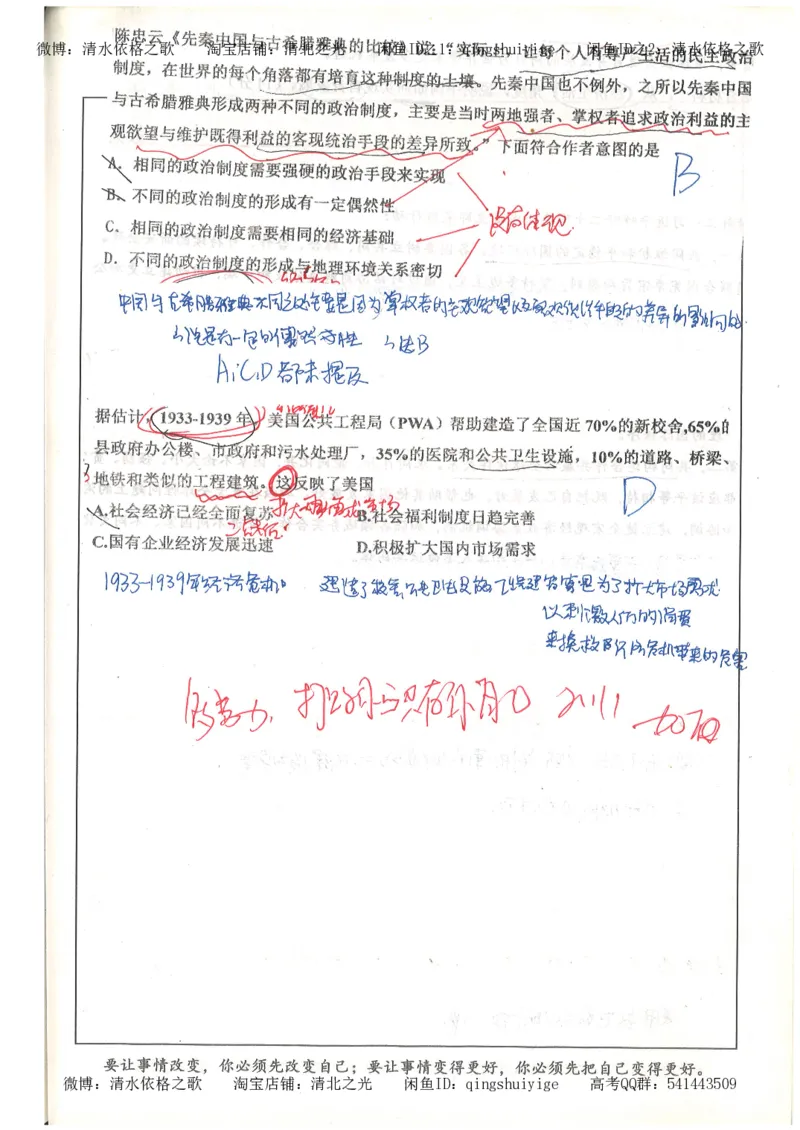 陈忠云《先秦中国与古希腊雅典的比较》说：“实际上，让每个人有尊严生活的民主政治
微博：清水依格之歌 淘宝店铺：清北之光 闲鱼ID1：qingshuiyige 闲鱼ID2：清水依格之歌
制度，在世界的每个角落都有培育这种制度的土壤。先秦中国也不例外，之所以先秦中国
与古希腊雅典形成两种不同的政治制度，主要是当时两地强者、掌权者追求政治利益的主
观欲望与维护既得利益的客现统治手段的差异所致。”下面符合作者意图的是
A．相同的政治制度需要强硬的政治手段来实现
B
B、不同的政治制度的形成有一定偶然性
没有体现
C．相同的政治制度需要相同的经济基础
D．不同的政治制度的形成与地理环境关系密切
中国与古希腊雅典不同之处主要是因为掌权者的主观欲望
选B
A、C、D都未提及
据估计，1933-1939年，美国公共工程局（PWA）帮助建造了全国近70%的新校舍,65%的
县政府办公楼、市政府和污水处理厂，35%的医院和公共卫生设施，10%的道路、桥梁、
地铁和类似的工程建筑。这反映了美国
D
A.社会经济已经全面复苏 B.社会福利制度日趋完善
C.国有企业经济发展迅速 D.积极扩大国内市场需求
1933-1939年经济危机 是为了扩大市场需求
以刺激人们的消费
来挽救经济危机带来的危害
加油
要让事情改变，你必须先改变自己；要让事情变得更好，你必须先把自己变得更好。
微博：清水依格之歌 淘宝店铺：清北之光 闲鱼ID：qingshuiyige 高考QQ群：541443509